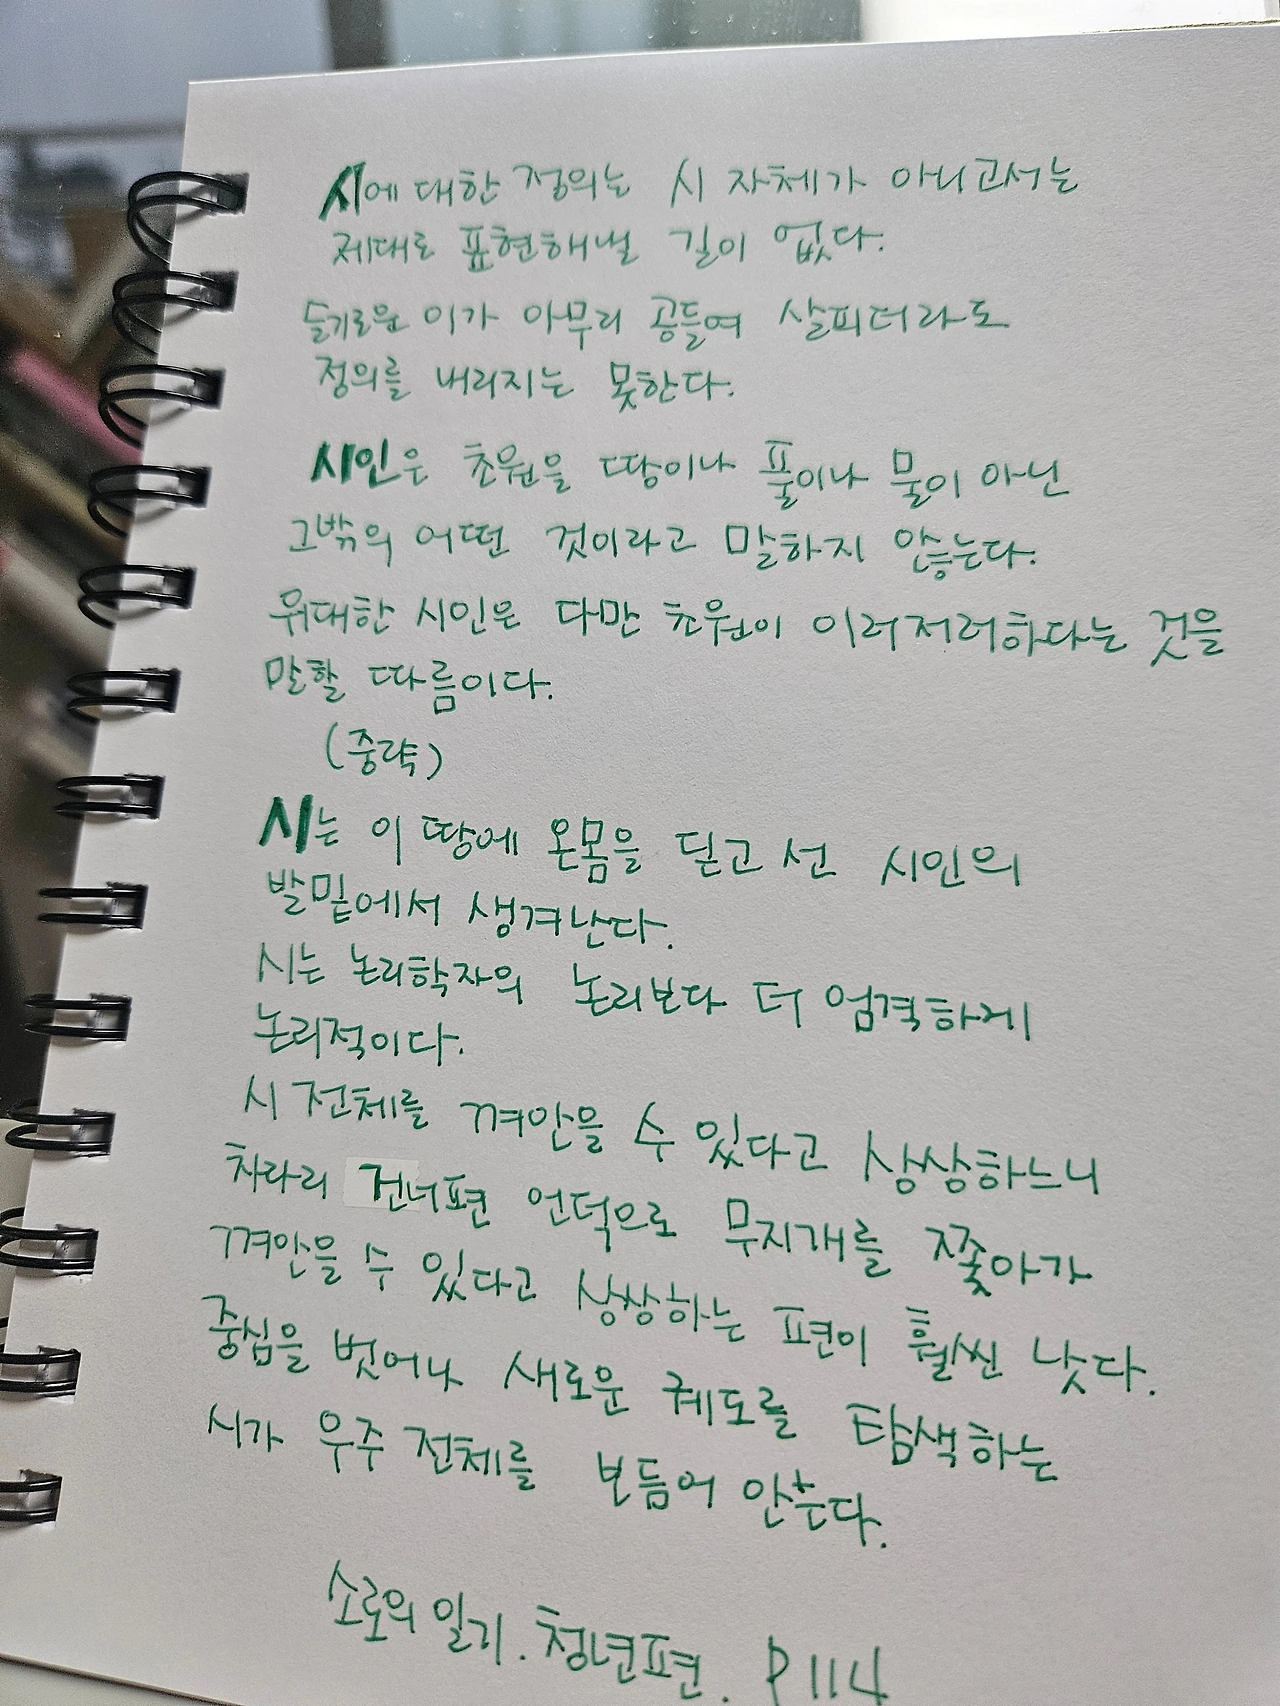 시에 대한 정의는 시 자체가 아니고서는
제대로 표현해낼 길이 없다.
슬기로운 이가 아무리 공들여 살피더라도
정의를 내리지는 못한다.
시인은 초원을 땅이나 풀이나 물이 아닌
그밖의 어떤 것이라고 말하지 않는다.
위대한 시인은 다만 초원이 이러저러하다는 것을
말할 따름이다.
(중략)
시는 이 땅에 온몸을 딛고 선 시인의
발밑에서 생겨난다.
시는 논리학자의 논리보다 더 엄격하게
논리적이다.
시 전체를 껴안을 수 있다고 상상하느니
차라리 건너편 언덕으로 무지개를 쫓아가
껴안을 수 있다고 상상하는 편이 훨씬 낫다.
중심을 벗어나 새로운 궤도를 탐색하는
시가 우주 전체를 보듬어 안는다.
소로의 일기. 청년편. P114